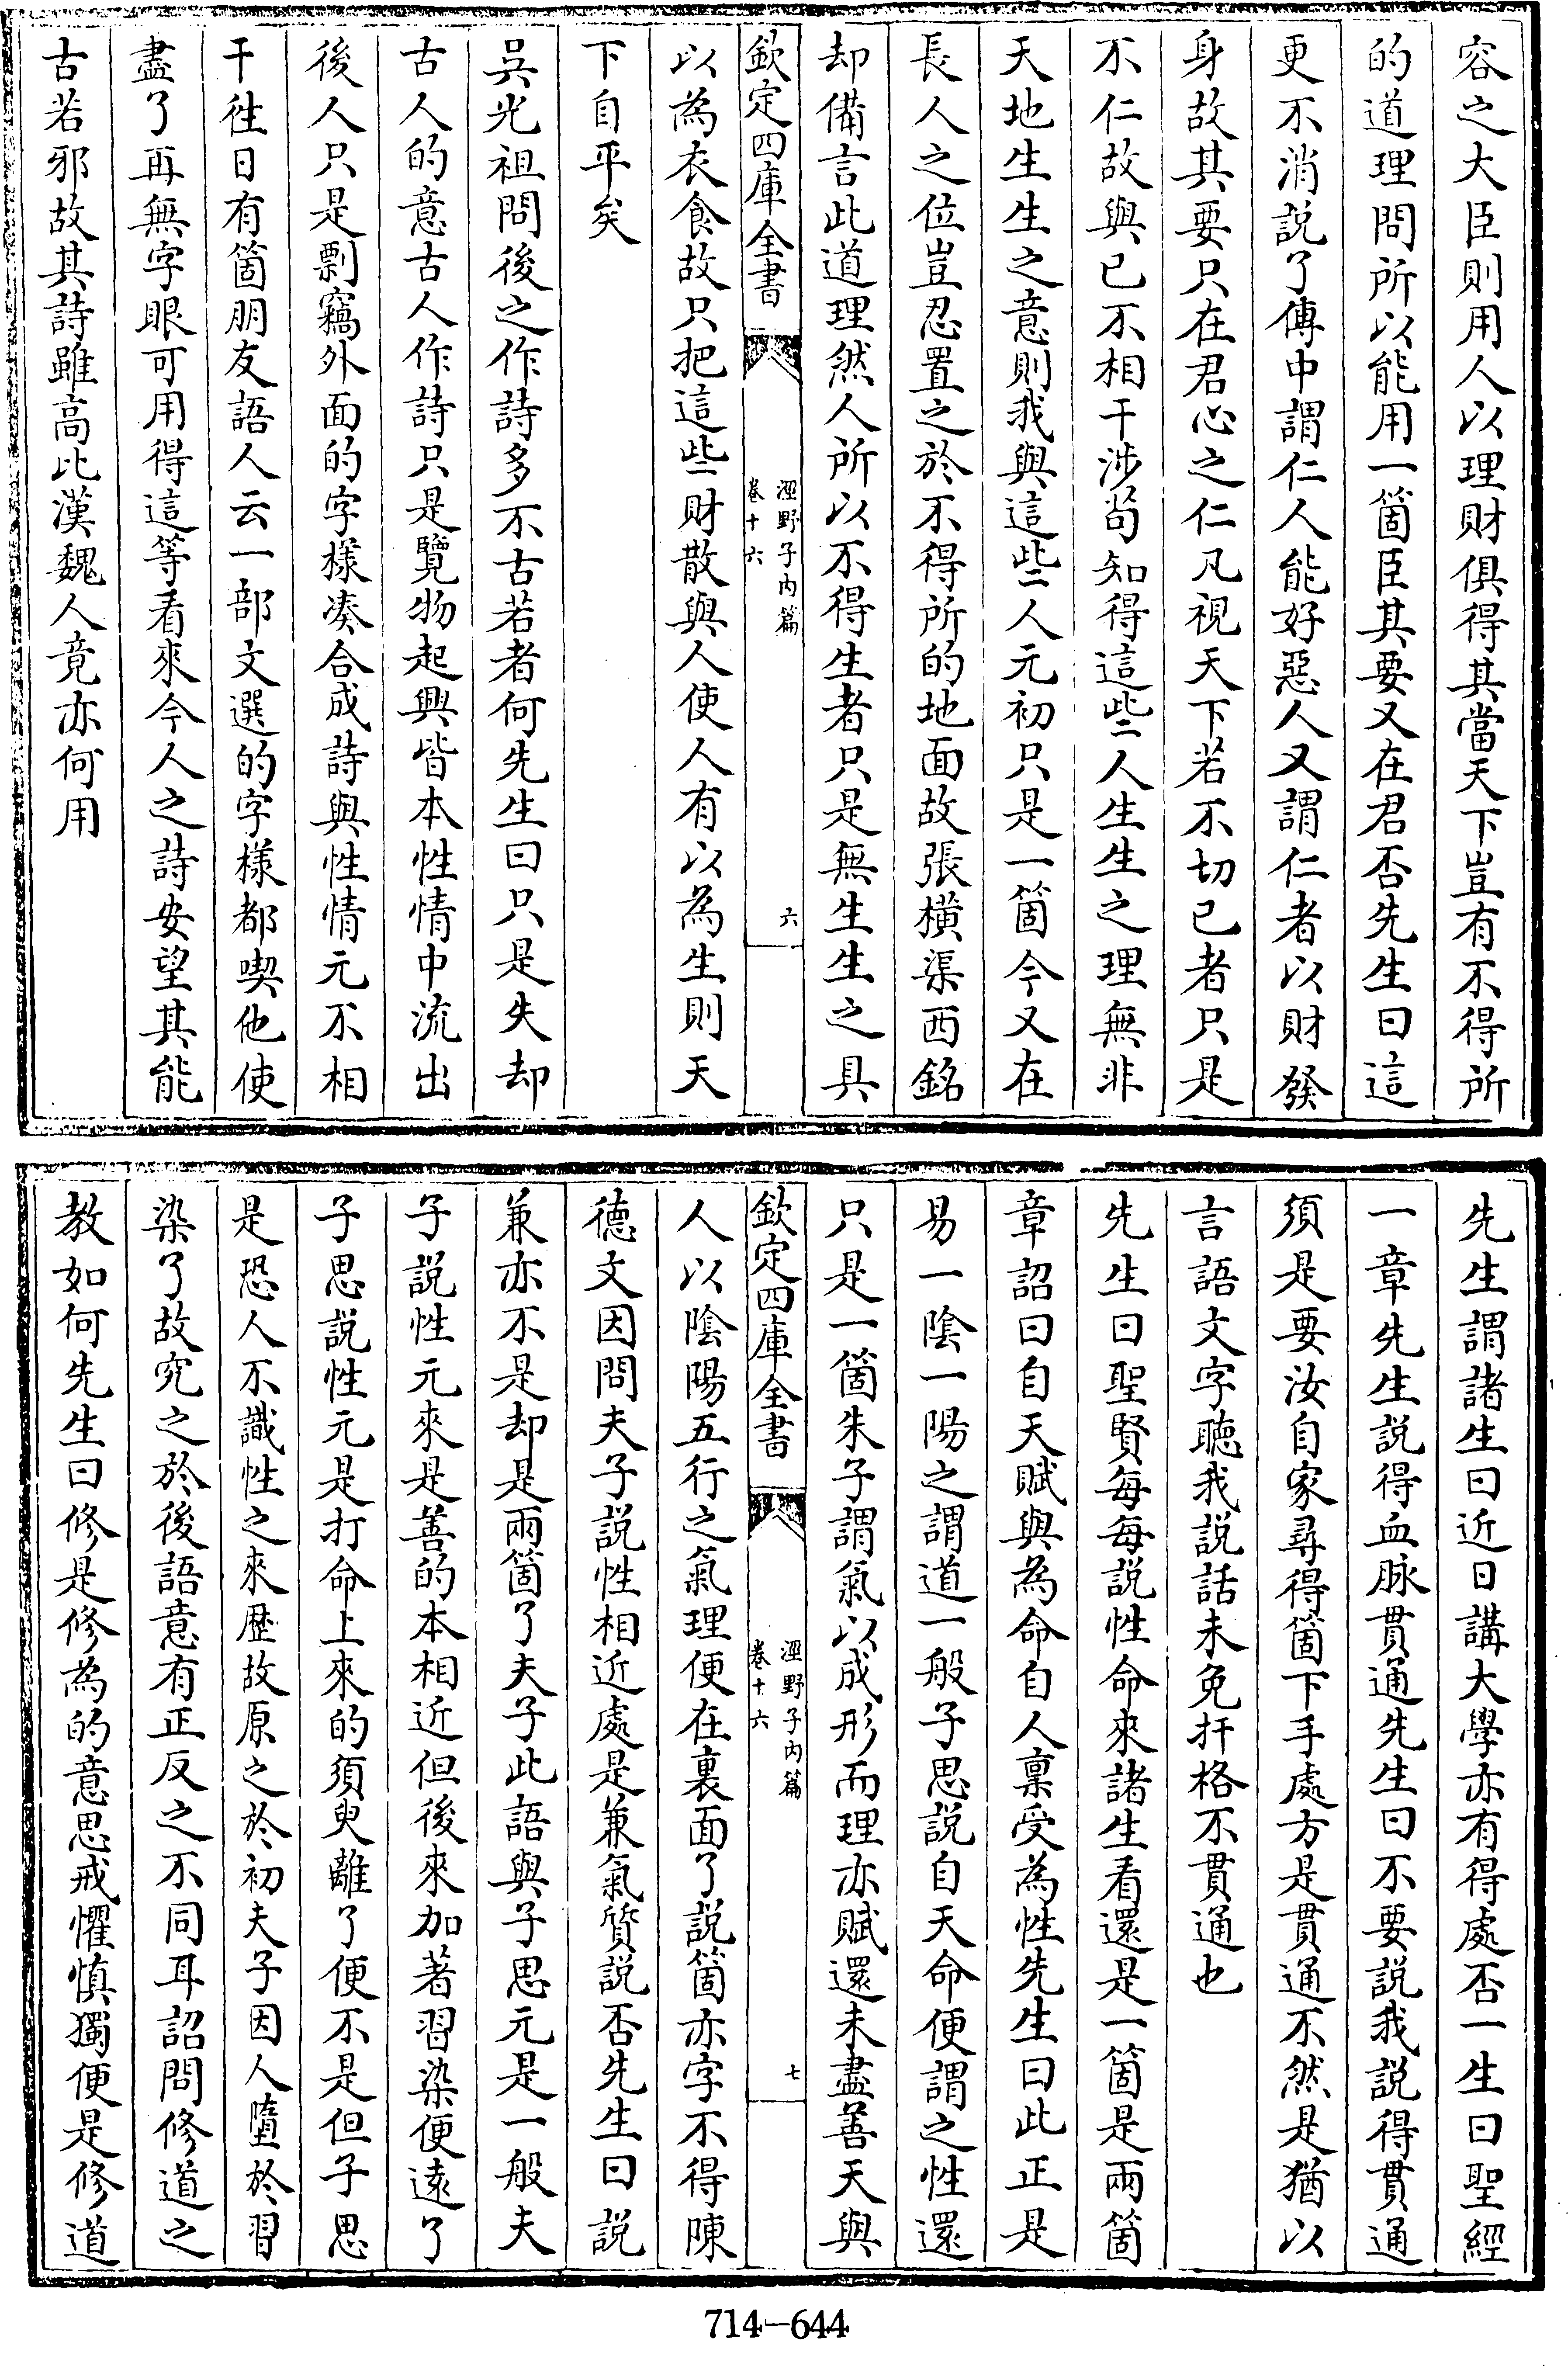 容之大臣則用人以理財俱得其當天下豈有不得所
的道理問所以能用一箇臣其要又在君否先生曰這
更不消説了傳中謂仁人能好惡人又謂仁者以財發
身故其要只在君心之仁凡視天下若不切已者只是
不仁故與已不相干涉茍知得這些人生生之理無非
天地生生之意則我與這些人元初只是一箇今又在
長人之位豈忍置之於不得所的地面故張橫渠西銘
却備言此道理然人所以不得生者只是無生生之具
欽定四庫全書
涇野子内篇
卷十六
六
以為衣食故只把這些財散與人使人有以為生則天
下自平矣
吳光祖問後之作詩多不古若者何先生曰只是失却
古人的意古人作詩只是覽物起興皆本性情中流出
後人只是剽竊外面的字様凑合成詩與性情元不相
干徃日有箇朋友語人云一部文選的字様都喫他使
盡了再無字眼可用得這等看來今人之詩安望其能
古若邪故其詩雖高比漢魏人竟亦何用
先生謂諸生曰近日講大學亦有得處否一生曰聖經
一章先生説得血脉貫通先生曰不要説我説得貫通
須是要汝自家尋得箇下手處方是貫通不然是猶以
言語文字聽我説話未免扞格不貫通也
先生曰聖賢每每説性命來諸生看還是一箇是兩箇
章詔曰自天賦與為命自人稟受為性先生曰此正是
易一陰一陽之謂道一般子思説自天命便謂之性還
只是一箇朱子謂氣以成形而理亦賦還未盡善天與
欽定四庫全書
涇野子内篇
卷十六
七
人以陰陽五行之氣理便在裏面了説箇亦字不得陳
德文因問夫子説性相近處是兼氣質説否先生曰説
兼亦不是却是兩箇了夫子此語與子思元是一般夫
子説性元來是善的本相近但後來加著習染便逺了
子思説性元是打命上來的須臾離了便不是但子思
是恐人不識性之來歴故原之於初夫子因人墮於習
染了故究之於後語意有正反之不同耳詔問修道之
教如何先生曰修是修為的意思戒懼慎獨便是修道
714-644